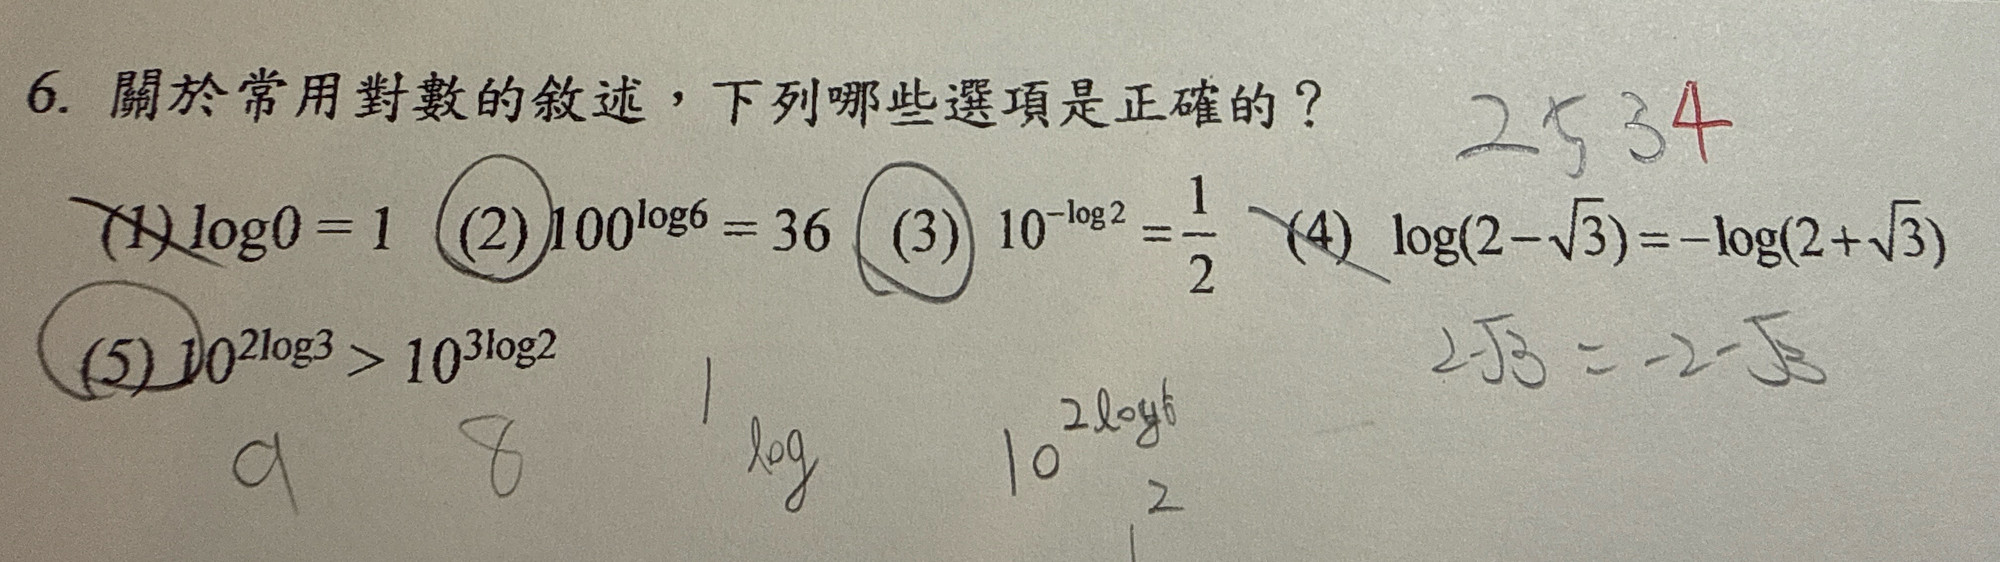 6. 關於常用對數的敘述，下列哪些選項是正確的？ 2 5 3 4
(1) log0 = 1 (2) 100^{log6} = 36 (3) 10^{-log2} = 1/2 (4) log(2-√3) = -log(2+√3)
(5) 10^{2log3} > 10^{3log2}
2-√3 = -2-√3
9 8 log 10^{2log6}
2